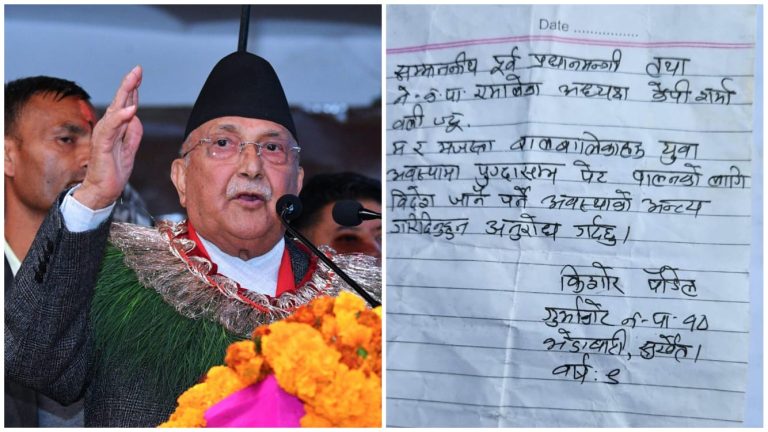 Date ..............
सम्माननीय पूर्व प्रधानमन्त्री तथा
ने.क.पा. एमालेका अध्यक्ष केपी शर्मा
वली ज्यू.
म र मजस्ता बालबालिकाहरू युवा
अवस्थामा पुग्दासम्म पेट पालनको लागि
विदेश जाने पर्ने अवस्थाको अन्त्य
गरिदिनुहुन अनुरोध गर्दछु।
किशोर
गुर्भाकोट न.पा. १०
सुर्खेत।
वर्ष: ९